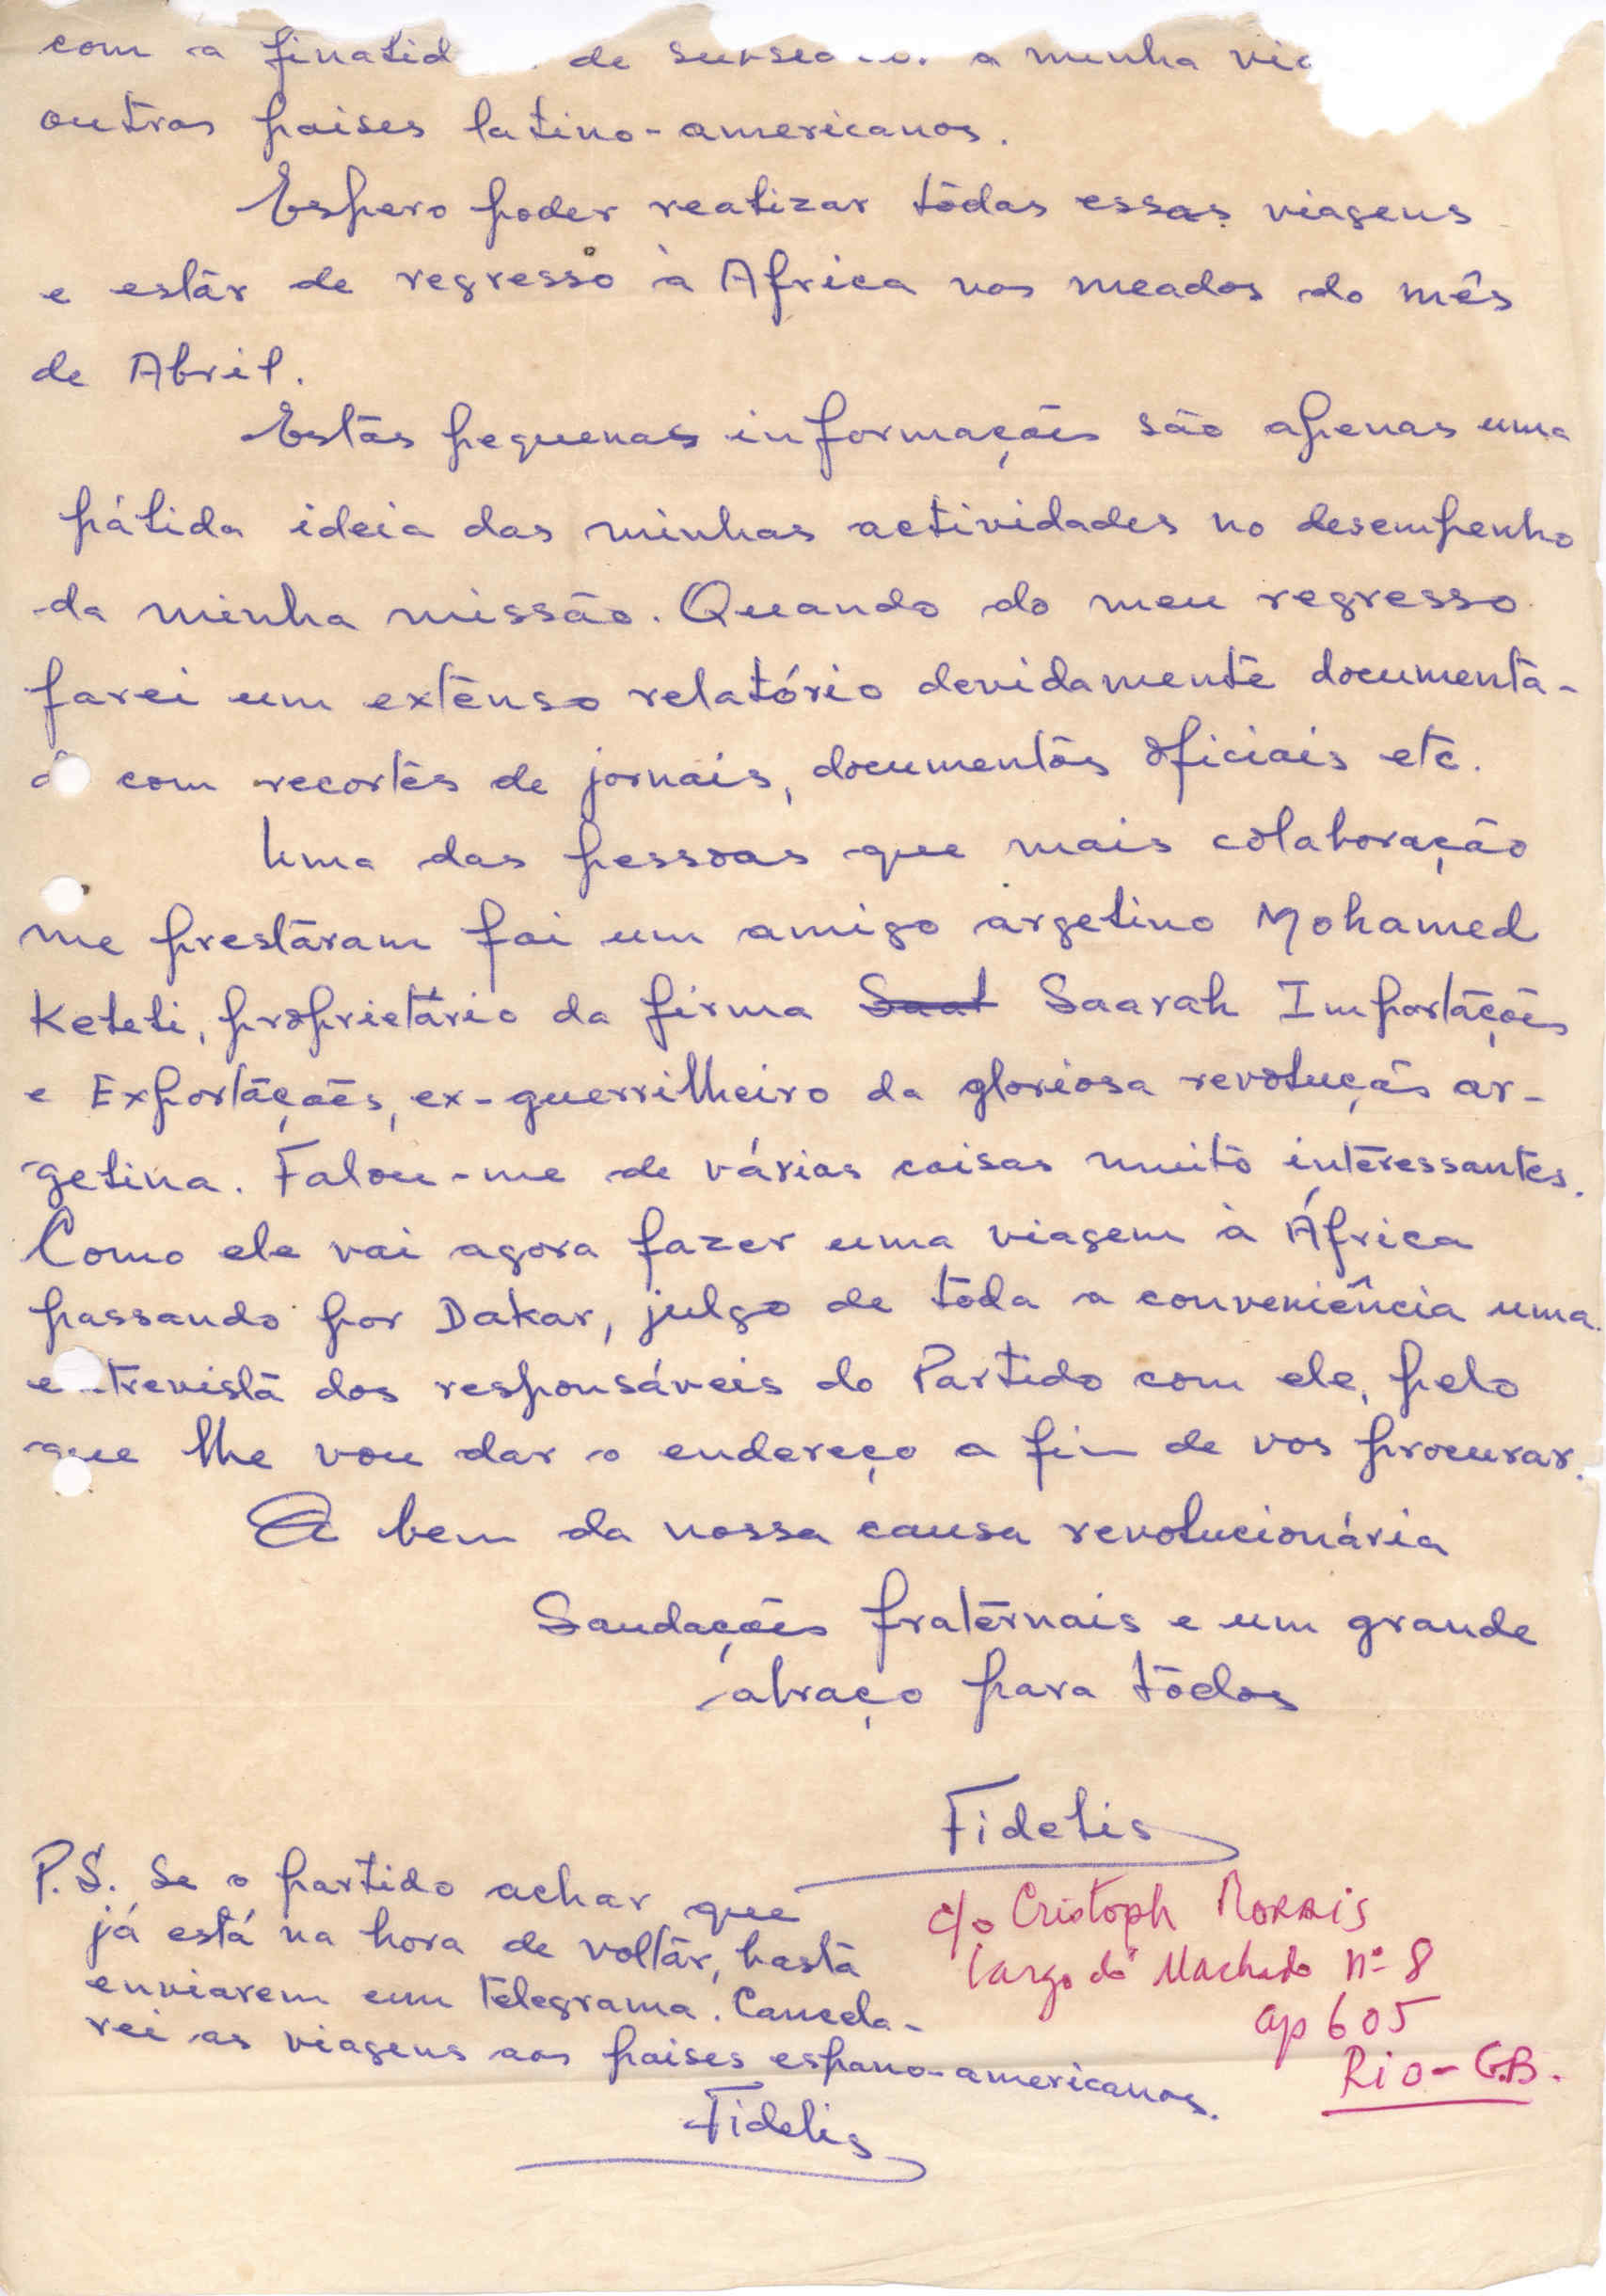 com a finalid de a minha
outros paises latino-americanos.
Espero poder realizar tôdas essas viagens
e estár de regresso à Africa nos meados do mês
de Abril.
Estás pequenas informações são apenas uma
pálida ideia das minhas actividades no desempenho
da minha missão. Quando do meu regresso
farei um extenso relatório devidamente documenta-
com recortes de jornais, documentos oficiais etc.
Uma das pessoas que mais colaboração
me prestaram foi um amigo argetino Mohamed
Keteti, proprietário da firma Saat Saarah Importações
e Exportações, ex-guerrilheiro da gloriosa revolução ar-
getina. Falou-me de várias coisas muito interessantes.
Como ele vai agora fazer uma viagem à África
passando por Dakar, julgo de tôda a conveniência uma
e trevista dos responsáveis do Partido com ele, pelo
que lhe vou dar o endereço a fim de vos procurar.
A bem da nossa causa revolucionária
Saudações fraternais e um grande
abraço para tôdos
Fidelis
P.S. Se o partido achar que
já está na hora de voltar, basta
enviarem um telegrama. Cancela-
rei as viagens aos paises espano-americanos.
Fidelis
c/o Cristoph MORAIS
Largo do Machado nº 8
ap 605
Rio - G.B.